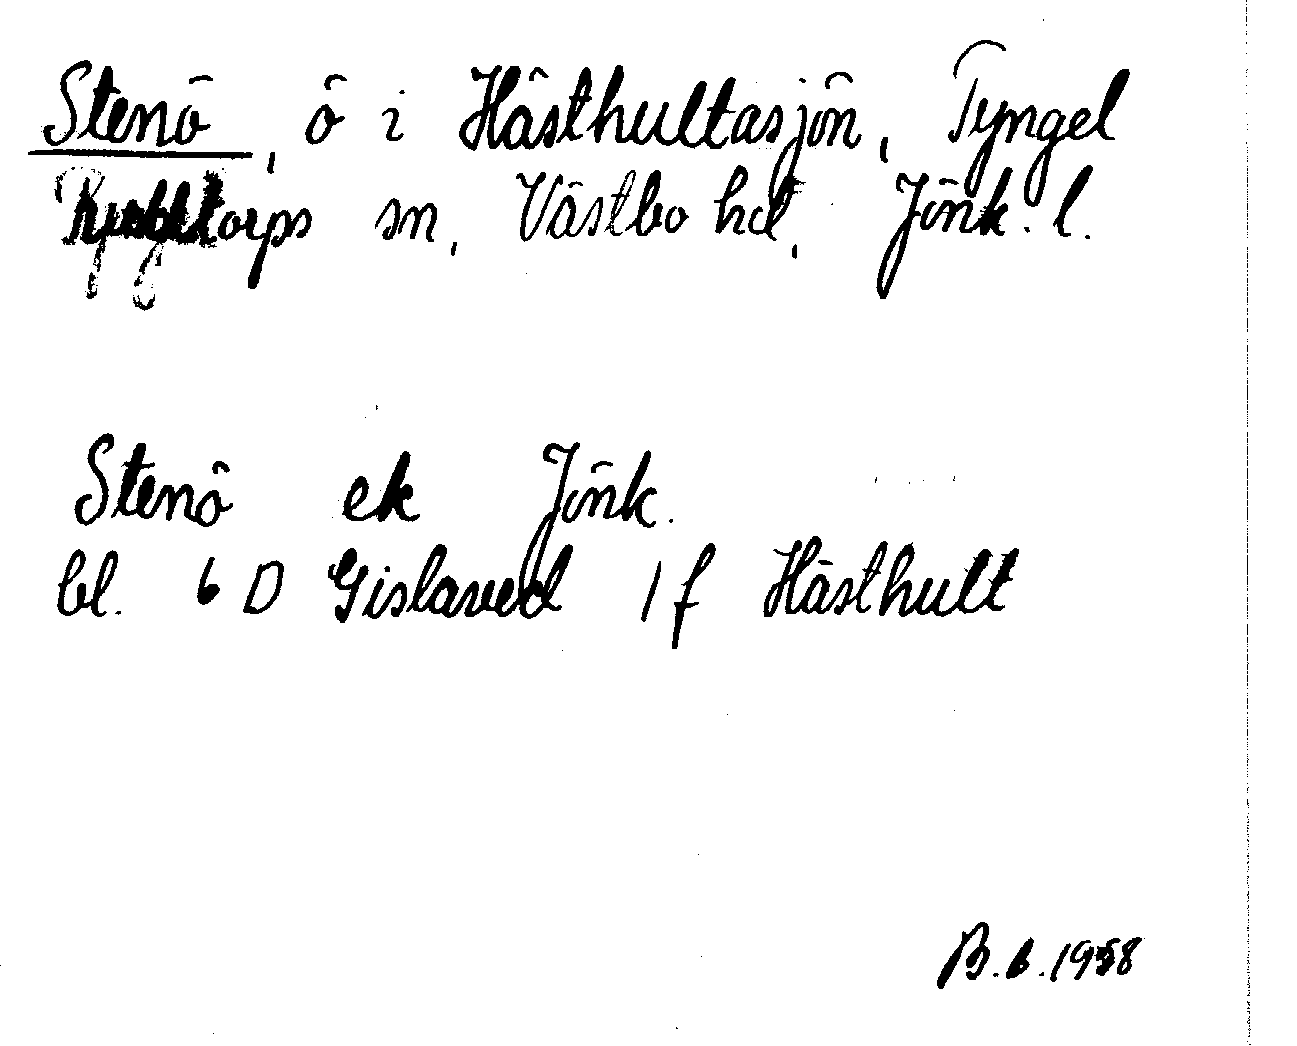 Stenö, ö i Hästhultasjön, Tyngel
torps sn, Västbo hd, Jönk. l.
Stenö ek Jönk.
bl. 6 D Gislaved 1 f Hästhult
B.6.1958